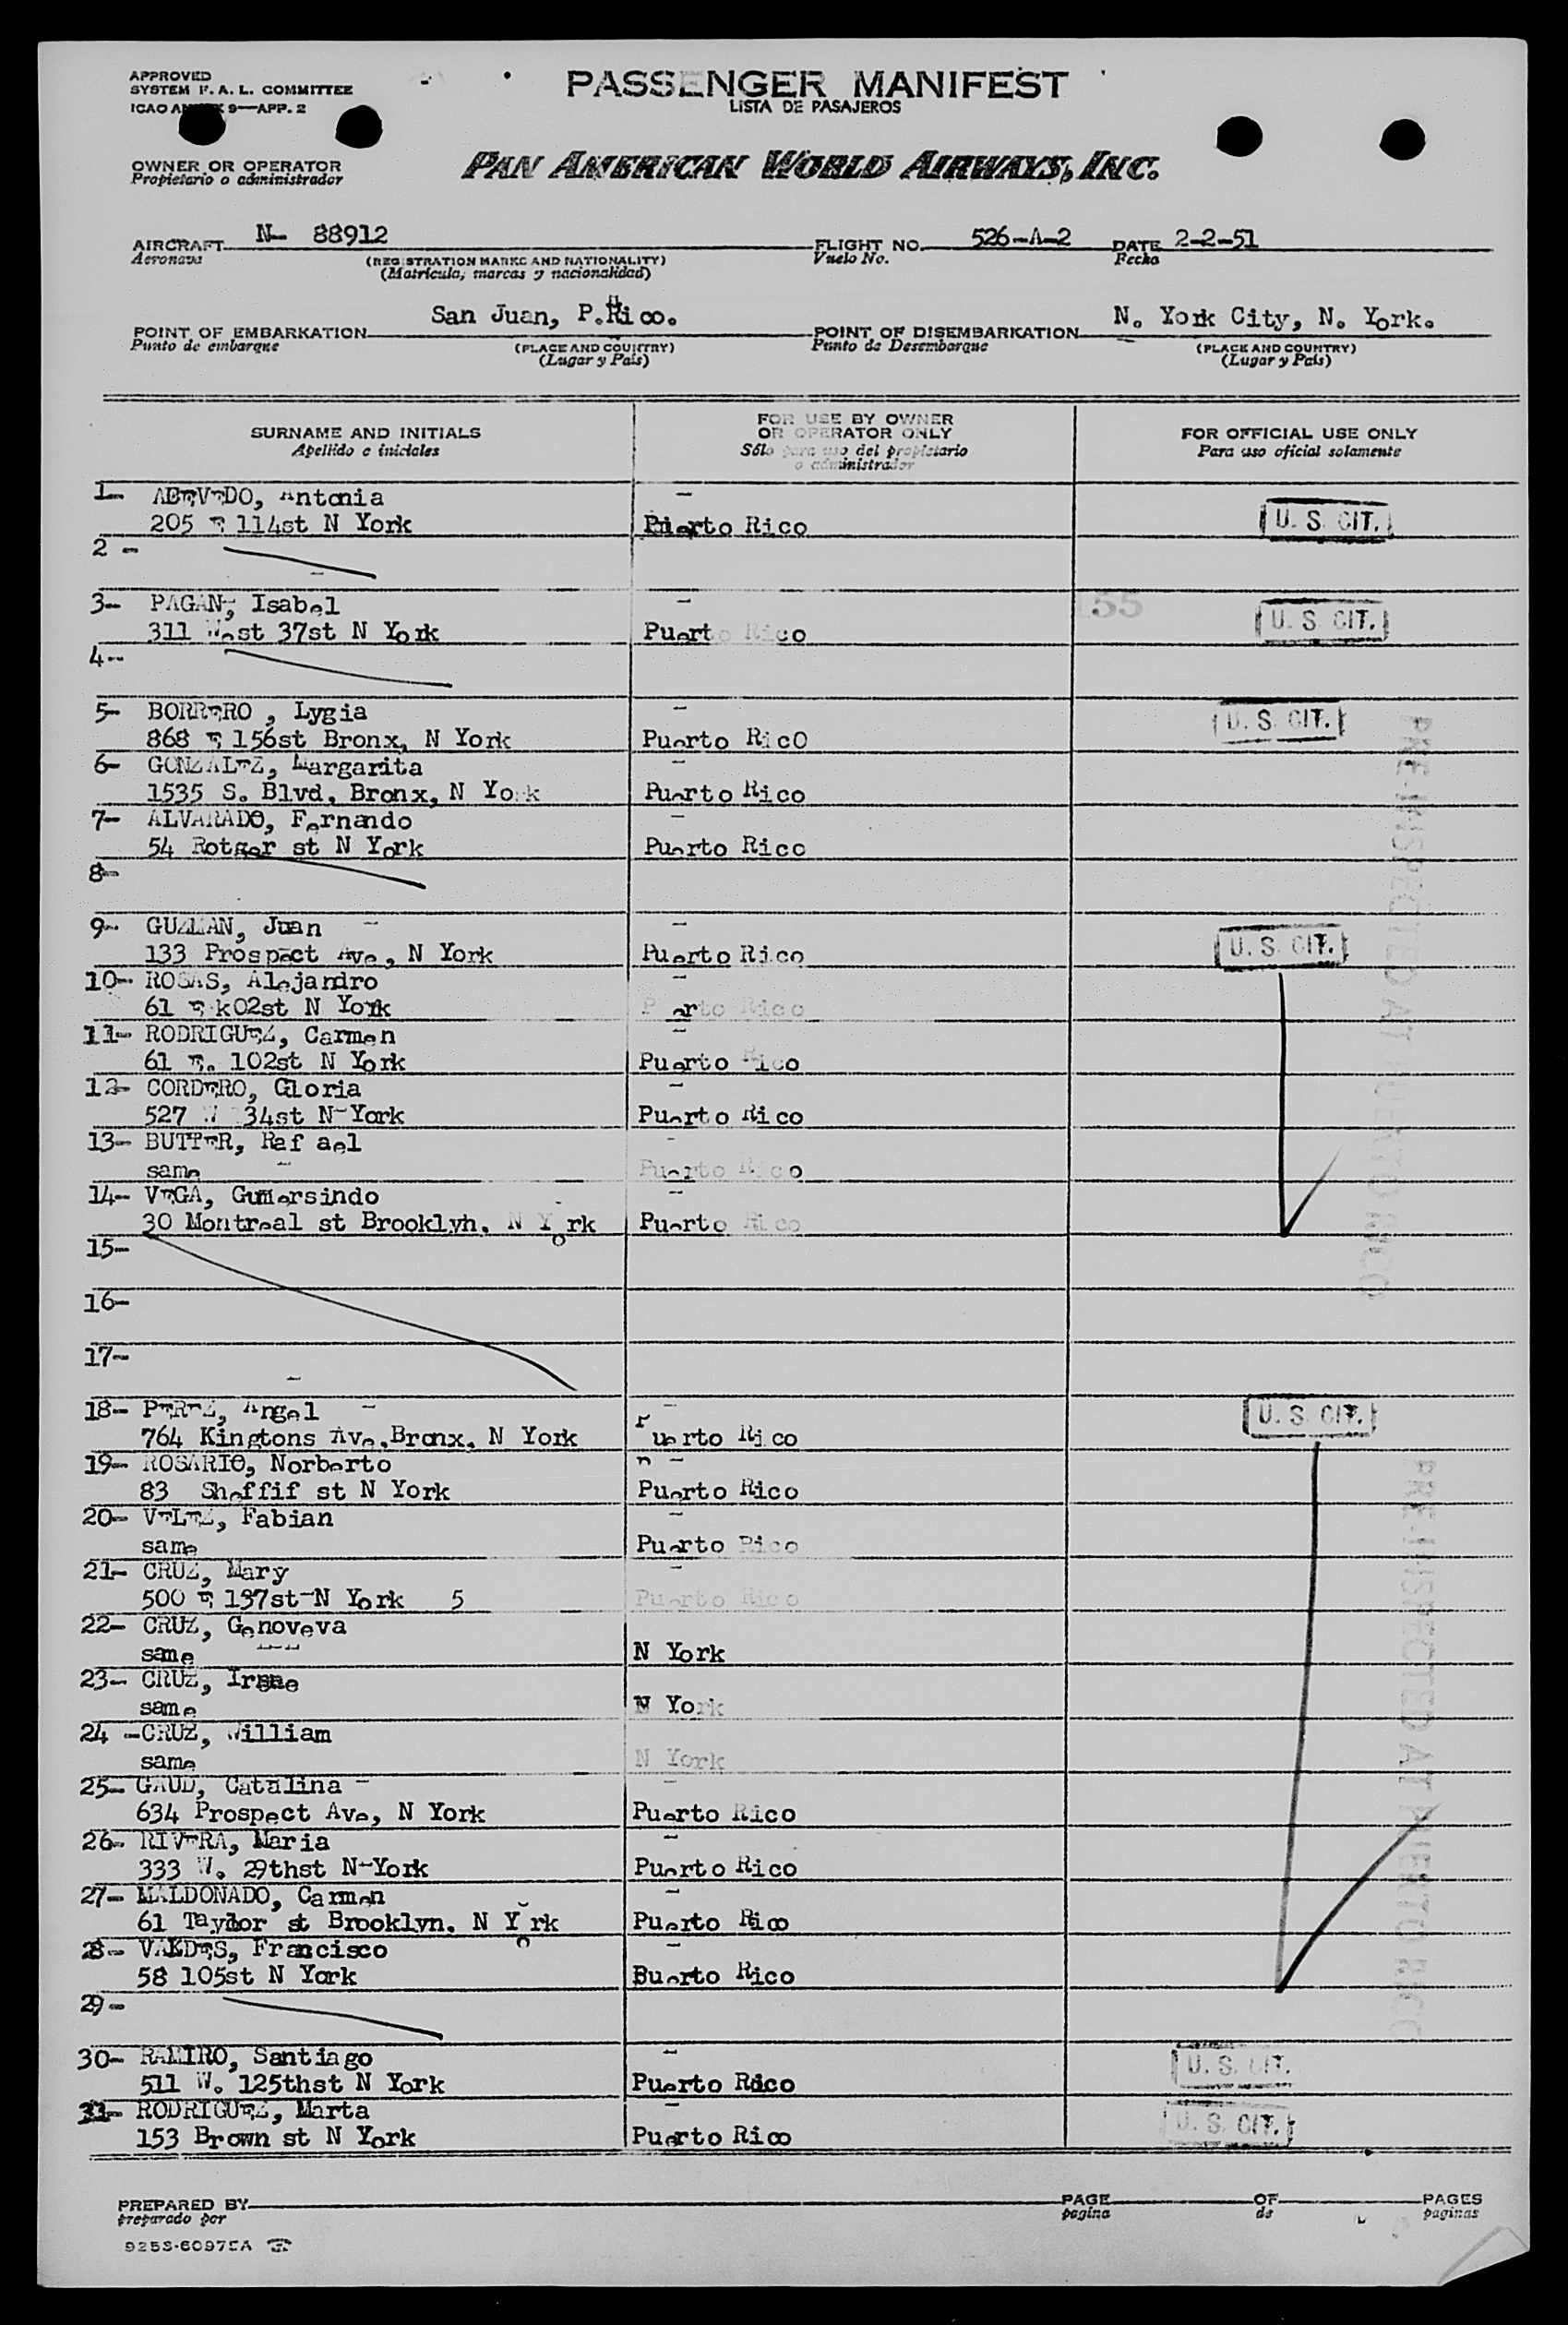 APPROVED
SYSTEM F. A. L. COMMITTEE
ICAO ANNEX 9—APP. 2
PASSENGER MANIFEST
LISTA DE PASAJEROS
OWNER OR OPERATOR
Propietario o administrador
PAN AMERICAN WORLD AIRWAYS, INC.
AIRCRAFT N- 88912 FLIGHT NO. 526-A-2 DATE 2-2-51
Aeronave (REGISTRATION MARKS AND NATIONALITY) Vuelo No. Fecha
(Matrícula, marcas y nacionalidad)
POINT OF EMBARKATION San Juan, P.Rico. POINT OF DISEMBARKATION N. York City, N. York.
Punto de embarque (PLACE AND COUNTRY) Punto de Desembarque (PLACE AND COUNTRY)
(Lugar y País) (Lugar y País)
SURNAME AND INITIALS FOR USE BY OWNER OR OPERATOR ONLY FOR OFFICIAL USE ONLY
Apellido e iniciales Sólo para uso del propietario o administrador Para uso oficial solamente
1- , Antonia
205 E 114st N York Puerto Rico U. S. CIT.
2 -
3- PAGAN, Isabel 155
311 West 37st N York Puerto Rico U. S. CIT.
4--
5- BORRERO , Lygia U. S. CIT.
868 E 156st Bronx, N York Puerto RicO
6- GONZALEZ, Margarita
1535 S. Blvd, Bronx, N York Puerto Rico
7- ALVARADO, Fernando
54 Rotger st N York Puerto Rico
8-
9- GUZMAN, Juan
133 Prospect Ave, N York Puerto Rico U. S. CIT.
10- ROSAS, Alejandro
61 E k02st N York P erto Rico
11- RODRIGUEZ, Carmen
61 E. 102st N York Puerto Rico
12- CORDERO, Gloria
527 W 34st N York Puerto Rico
13- BUTTER, Raf ael
same Puerto Rico
14- VEGA, Gumersindo
30 Montreal st Brooklyh, N York Puerto Rico
15-
16-
17-
PRE-INSPECTED AT PUERTO RICO
18- PEREZ, Angel U. S. CIT.
764 Kingtons Ave,Bronx, N York Puerto Rico
19- ROSARIO, Norberto
83 Sheffif st N York Puerto Rico
20- VELEZ, Fabian
same Puerto Rico
21- CRUZ, Mary
500 E 137st-N York 5 Puerto Rico
22- CRUZ, Genoveva
same N York
23- CRUZ, Irene
same N York
24 -CRUZ, William
same N York
25- GAUD, Catalina
634 Prospect Ave, N York Puerto Rico
26- RIVERA, Maria
333 W. 29thst N-York Puerto Rico
27- MALDONADO, Carmen
61 Taylor st Brooklyn, N York Puerto Rico
28- , Francisco
58 105st N York Buerto Rico
29-
PRE-INSPECTED AT PUERTO RICO
30- RAMIRO, Santiago U. S. CIT.
511 W. 125thst N York Puerto Rico
31- RODRIGUEZ, Marta U. S. CIT.
153 Brown st N York Puerto Rico
PREPARED BY PAGE OF PAGES
preparado por pagina de paginas